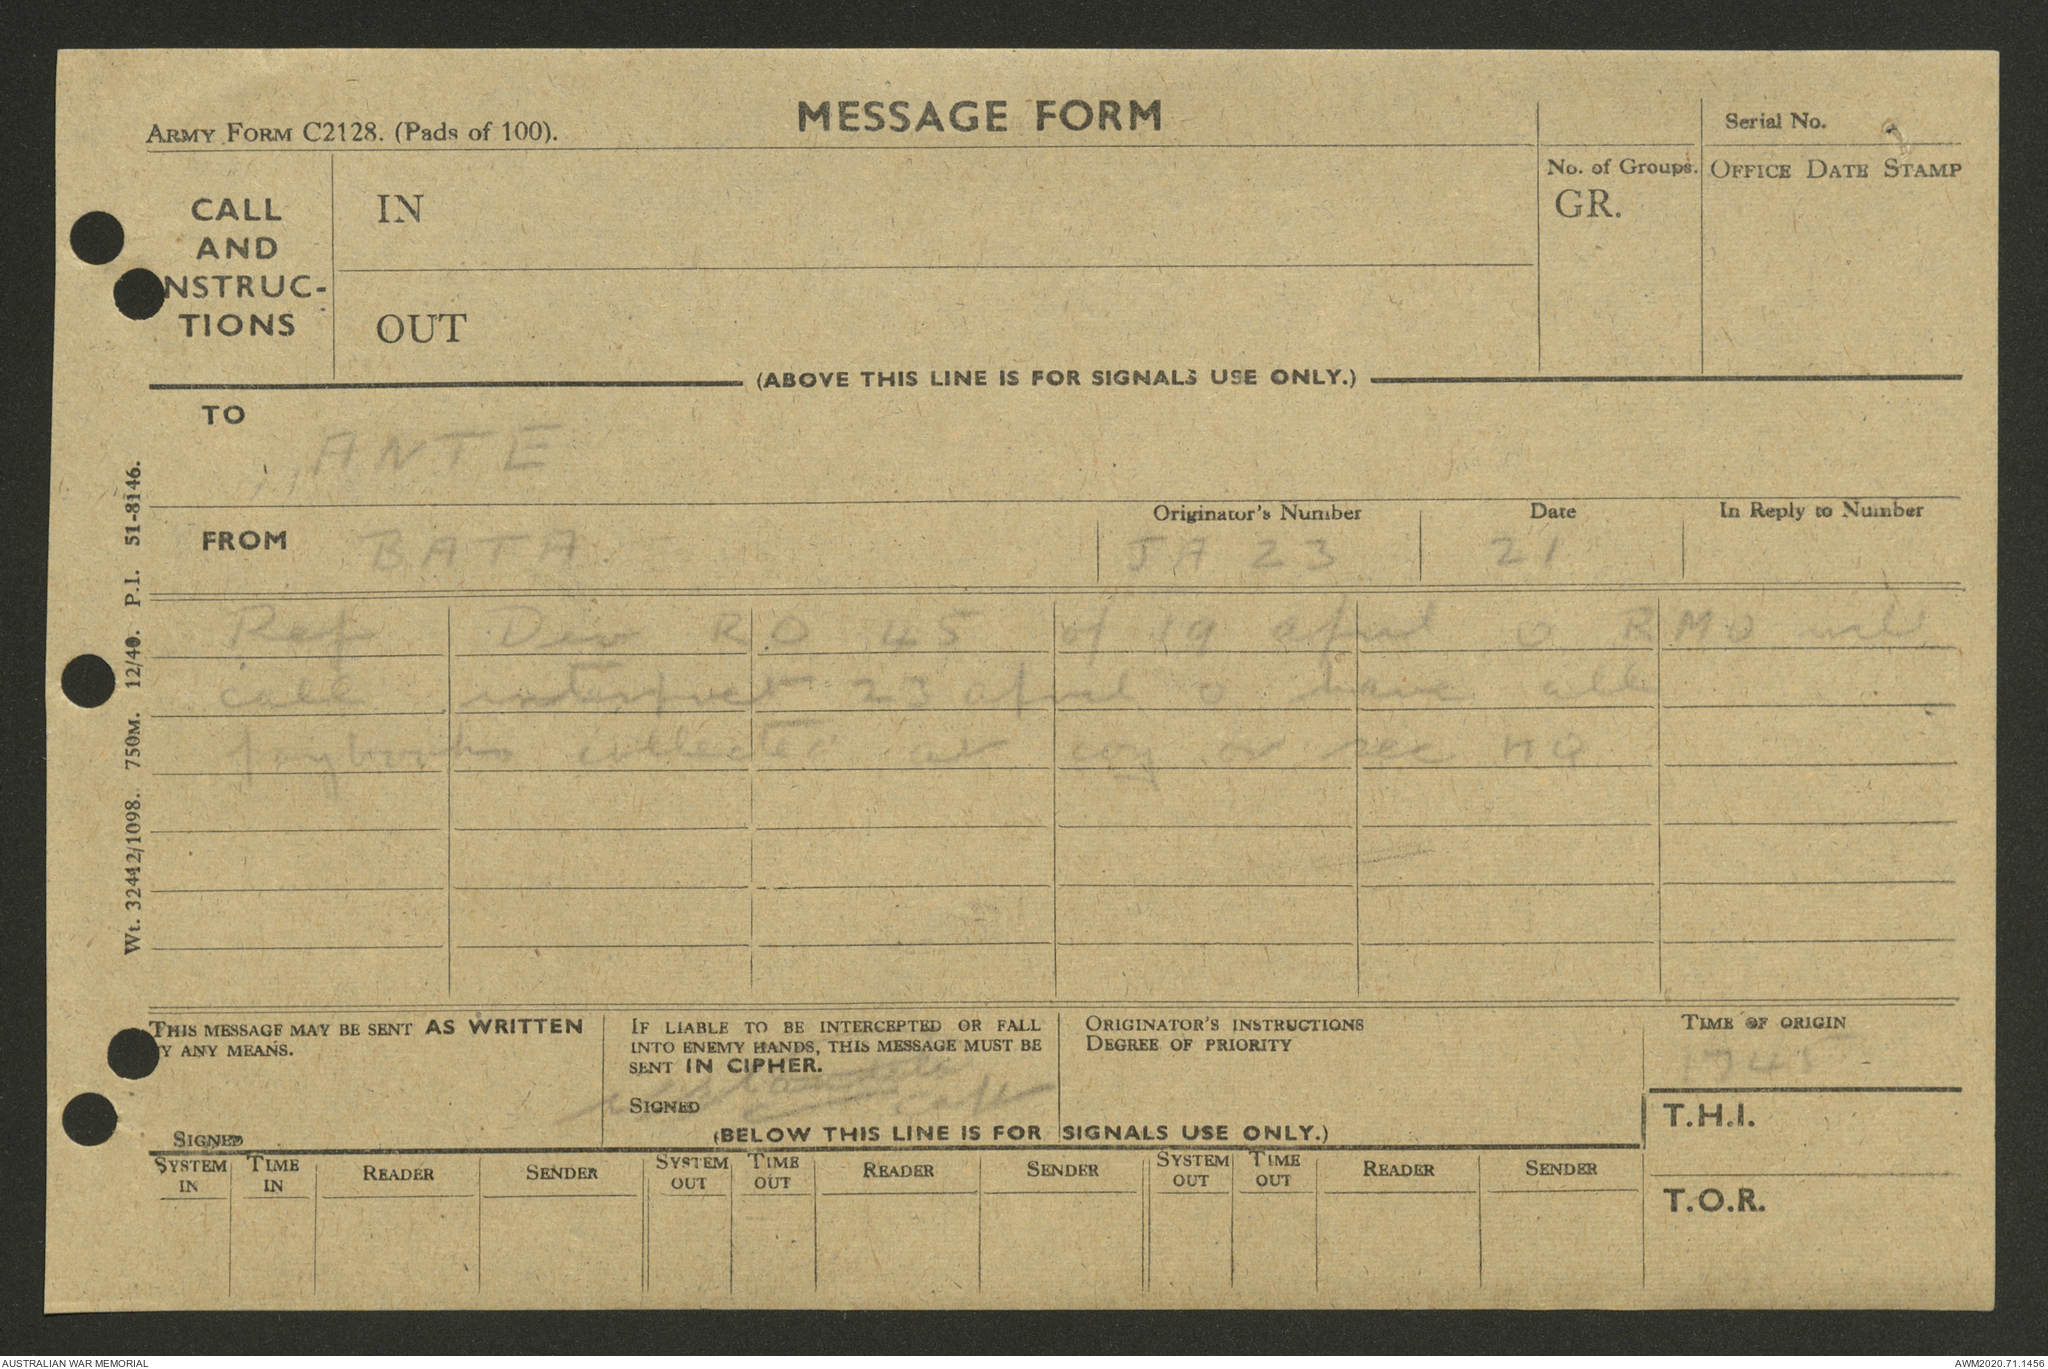 MESSAGE FORM
ARMY FORM C2128. (Pads of 100).
Serial No.
CALL
AND
INSTRUC-
TIONS
IN
OUT
No. of Groups.
GR.
OFFICE DATE STAMP
(ABOVE THIS LINE IS FOR SIGNALS USE ONLY.)
TO
ANTE
FROM
BATA.
Originator's Number
JA 23
Date
21
In Reply to Number
Ref Div RO 45 of 19 april o RMO will
call 23 april o have all
paybooks collected at coy or sec HQ
Wt. 32442/1098. 750M. 12/40. P.I. 51-8146.
THIS MESSAGE MAY BE SENT AS WRITTEN
BY ANY MEANS.
SIGNED
IF LIABLE TO BE INTERCEPTED OR FALL
INTO ENEMY HANDS, THIS MESSAGE MUST BE
SENT IN CIPHER.
SIGNED
ORIGINATOR'S INSTRUCTIONS
DEGREE OF PRIORITY
TIME OF ORIGIN
1745
T.H.I.
T.O.R.
(BELOW THIS LINE IS FOR SIGNALS USE ONLY.)
SYSTEM IN TIME IN READER SENDER SYSTEM OUT TIME OUT READER SENDER SYSTEM OUT TIME OUT READER SENDER
AUSTRALIAN WAR MEMORIAL
AWM2020.71.1456